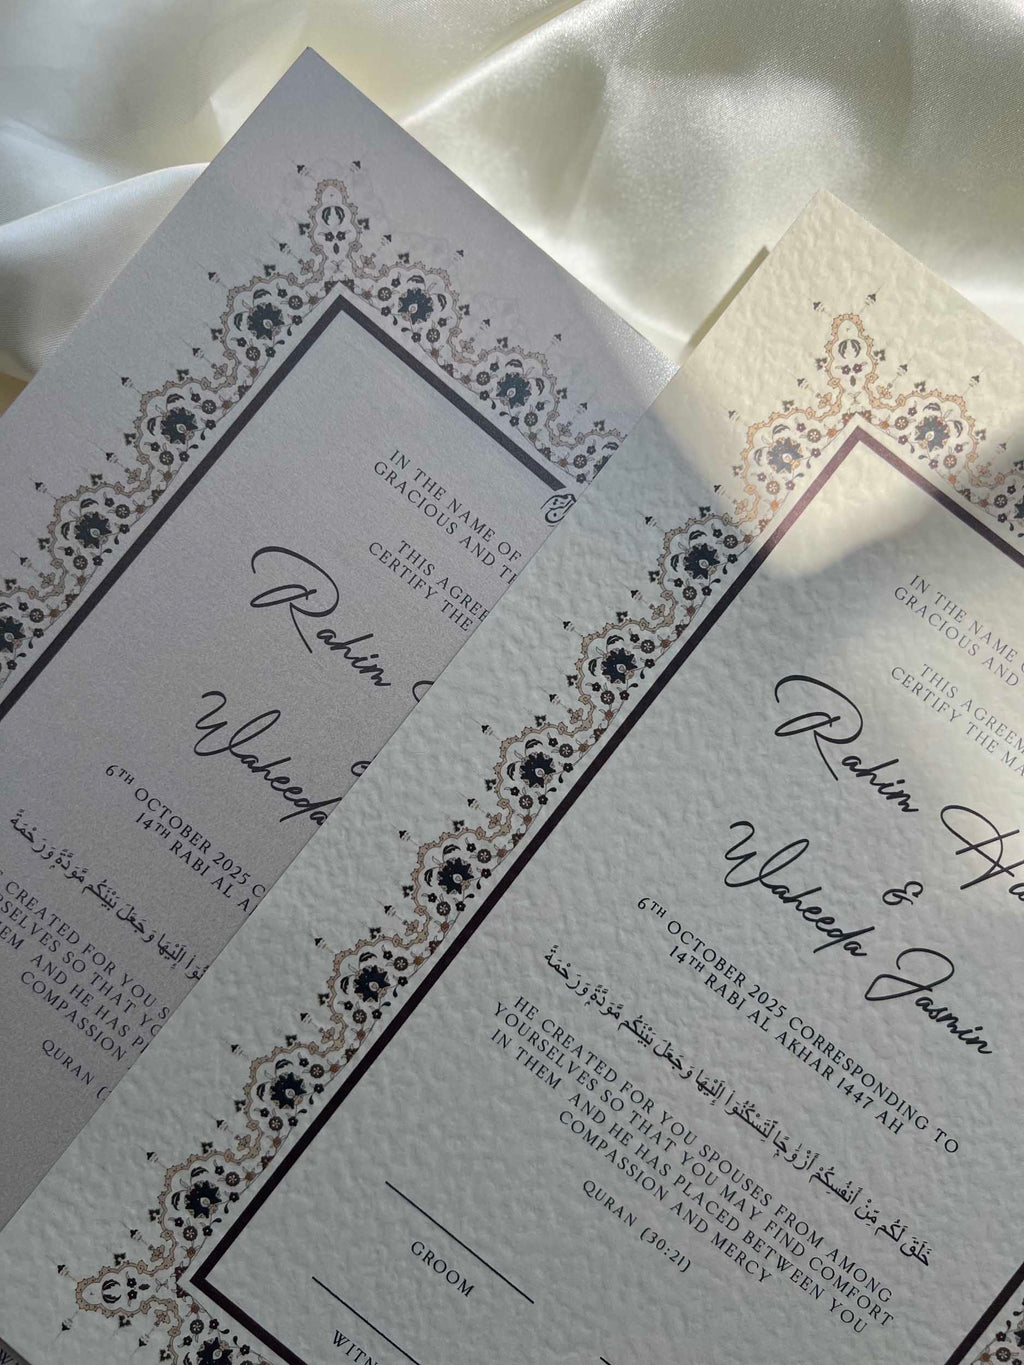 IN THE NAME OF
GRACIOUS AND
THIS AGREE
CERTIFY THE
Rahim
Waheeda
6TH OCTOBER 2025
14TH RABI AL
إِلَيْهَا وَجَعَلَ بَيْنَكُم مَّوَدَّةً وَرَحْمَةً
CREATED FOR YOU
SO THAT
AND HE HAS
COMPASSION
QURAN (
IN THE NAME
GRACIOUS AND
THIS AGREEM
CERTIFY THE MA
Rahim
&
Waheeda Jasmin
6TH OCTOBER 2025 CORRESPONDING TO
14TH RABI AL AKHAR 1447 AH
خَلَقَ لَكُم مِّنْ أَنفُسِكُمْ أَزْوَٰجًا لِّتَسْكُنُوٓا۟ إِلَيْهَا وَجَعَلَ بَيْنَكُم مَّوَدَّةً وَرَحْمَةً
HE CREATED FOR YOU SPOUSES FROM AMONG
YOURSELVES SO THAT YOU MAY FIND COMFORT
IN THEM AND HE HAS PLACED BETWEEN YOU
COMPASSION AND MERCY
QURAN (30:21)
GROOM
WITN